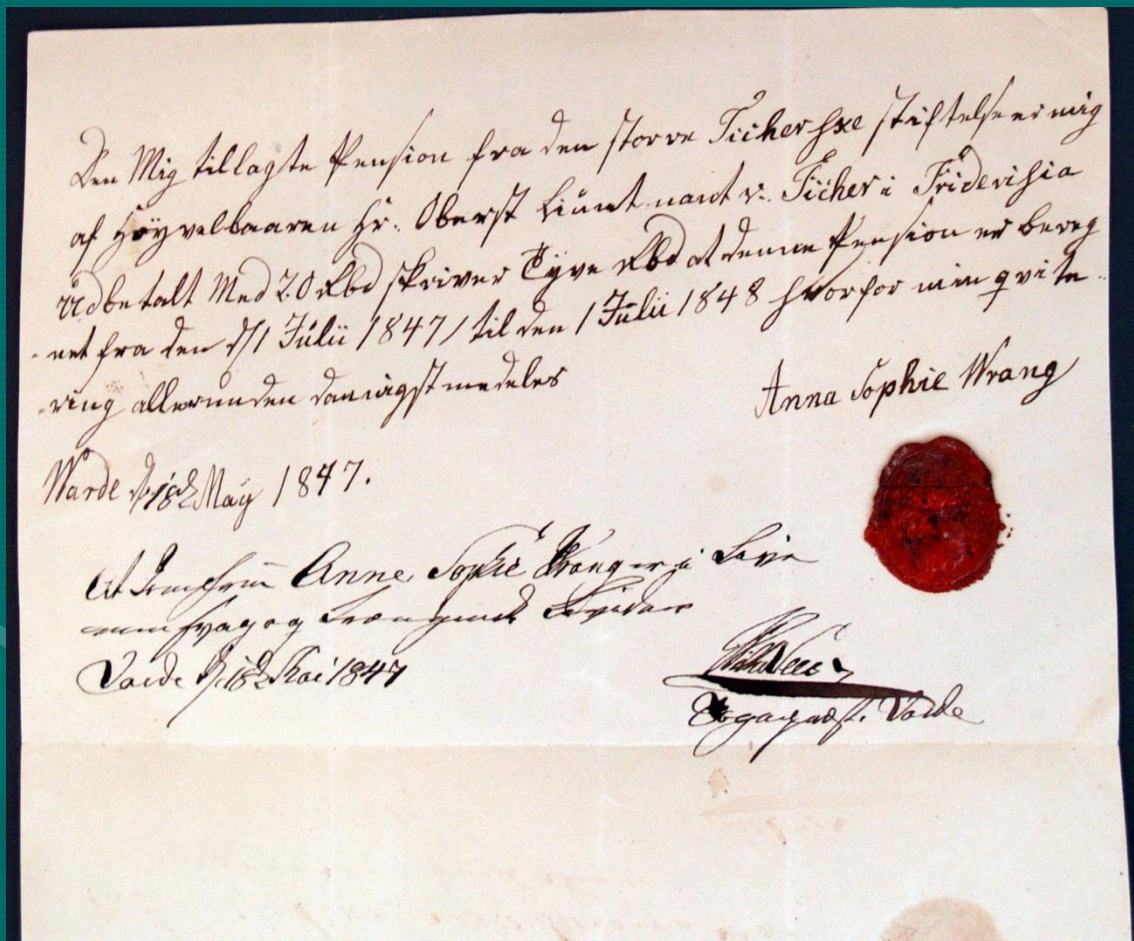 Den Mig tillagte Pension fra den storre Ficherske stiftelse er mig
af Høyvelbaaren Hr. Oberst Liüntnant v. Ficher i Fridericia
Udbetalt Med 20 Rbd skriver Tyve Rbd at denne Pension er bereg
-net fra den 1 Julii 1847 til den 1 Julii 1848 hvorfor min qvite-
-ring allerunderdanigst medeles
Anna Sophie Wrang
Warde d. 18d May 1847.
At Jomfrue Anne Sophie Wrang er i Live
svag og trængende
Varde d. 18d Mai 1847
Sognepræst. Varde